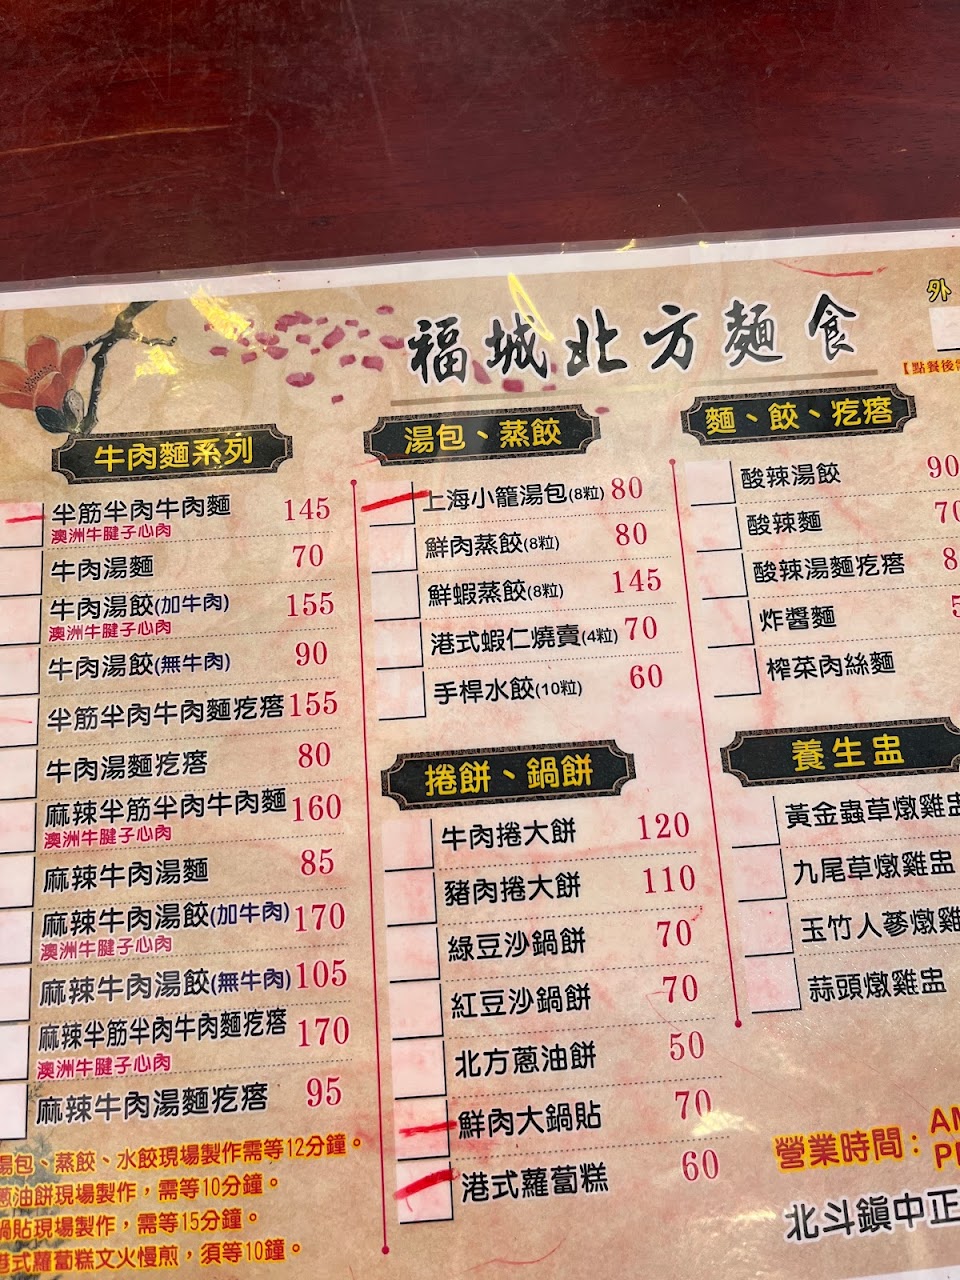 福城北方麵食
外
【點餐後
牛肉麵系列
半筋半肉牛肉麵 145
澳洲牛腱子心肉
牛肉湯麵 70
牛肉湯餃(加牛肉) 155
澳洲牛腱子心肉
牛肉湯餃(無牛肉) 90
半筋半肉牛肉麵疙瘩 155
牛肉湯麵疙瘩 80
麻辣半筋半肉牛肉麵 160
澳洲牛腱子心肉
麻辣牛肉湯麵 85
麻辣牛肉湯餃(加牛肉) 170
澳洲牛腱子心肉
麻辣牛肉湯餃(無牛肉) 105
麻辣半筋半肉牛肉麵疙瘩 170
澳洲牛腱子心肉
麻辣牛肉湯麵疙瘩 95
湯包、蒸餃、水餃現場製作需等12分鐘。
蔥油餅現場製作，需等10分鐘。
鍋貼現場製作，需等15分鐘。
港式蘿蔔糕文火慢煎，須等10鐘。
湯包、蒸餃
上海小籠湯包(8粒) 80
鮮肉蒸餃(8粒) 80
鮮蝦蒸餃(8粒) 145
港式蝦仁燒賣(4粒) 70
手桿水餃(10粒) 60
捲餅、鍋餅
牛肉捲大餅 120
豬肉捲大餅 110
綠豆沙鍋餅 70
紅豆沙鍋餅 70
北方蔥油餅 50
鮮肉大鍋貼 70
港式蘿蔔糕 60
麵、餃、疙瘩
酸辣湯餃 90
酸辣麵 70
酸辣湯麵疙瘩 8
炸醬麵 5
榨菜肉絲麵
養生盅
黃金蟲草燉雞盅
九尾草燉雞盅
玉竹人蔘燉雞
蒜頭燉雞盅
營業時間：AM
PM
北斗鎮中正